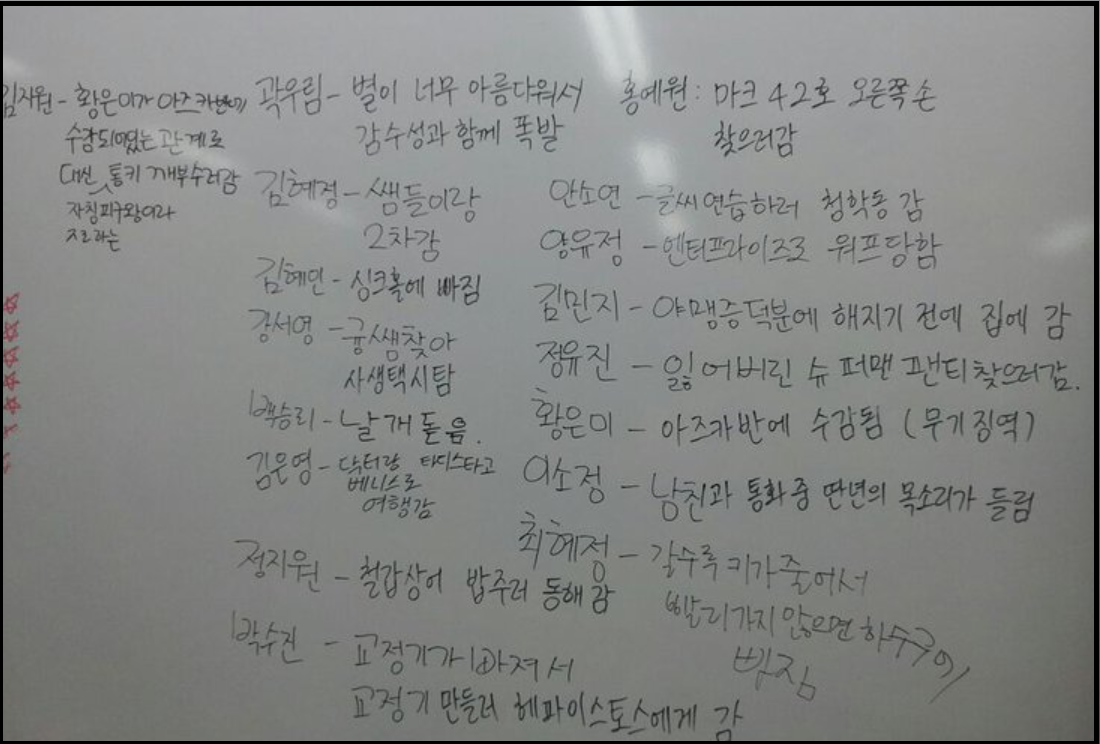 김지원 - 황은미가 아즈카반에
수감되어있는 관계로
대신 통키 깨부수러감
자칭피구왕이라
지르라는
곽우림 - 별이 너무 아름다워서
감수성과 함께 폭발
김혜정 - 쌤들이랑
2차감
김혜민 - 싱크홀에 빠짐
강서영 - 궁쌤찾아
사생택시탐
백승리 - 날개돋음.
김은영 - 닥터랑 타디스타고
베니스로
여행감
정지원 - 철갑상어 밥주러 동해감
박수진 - 교정기가 빠져서
교정기 만들러 헤파이스토스에게 감
홍예원 : 마크 42호 오른쪽 손
찾으러감
안소연 - 글씨연습하러 청학동 감
양유정 - 엔터프라이즈로 워프당함
김민지 - 야맹증덕분에 해지기 전에 집에 감
정유진 - 잃어버린 슈퍼맨 팬티찾으러감.
황은미 - 아즈카반에 수감됨 (무기징역)
이소정 - 남친과 통화중 딴년의 목소리가 들림
최혜정 - 갈수록 키가줄어서
빨리가지 않으면 하수구에
빠짐